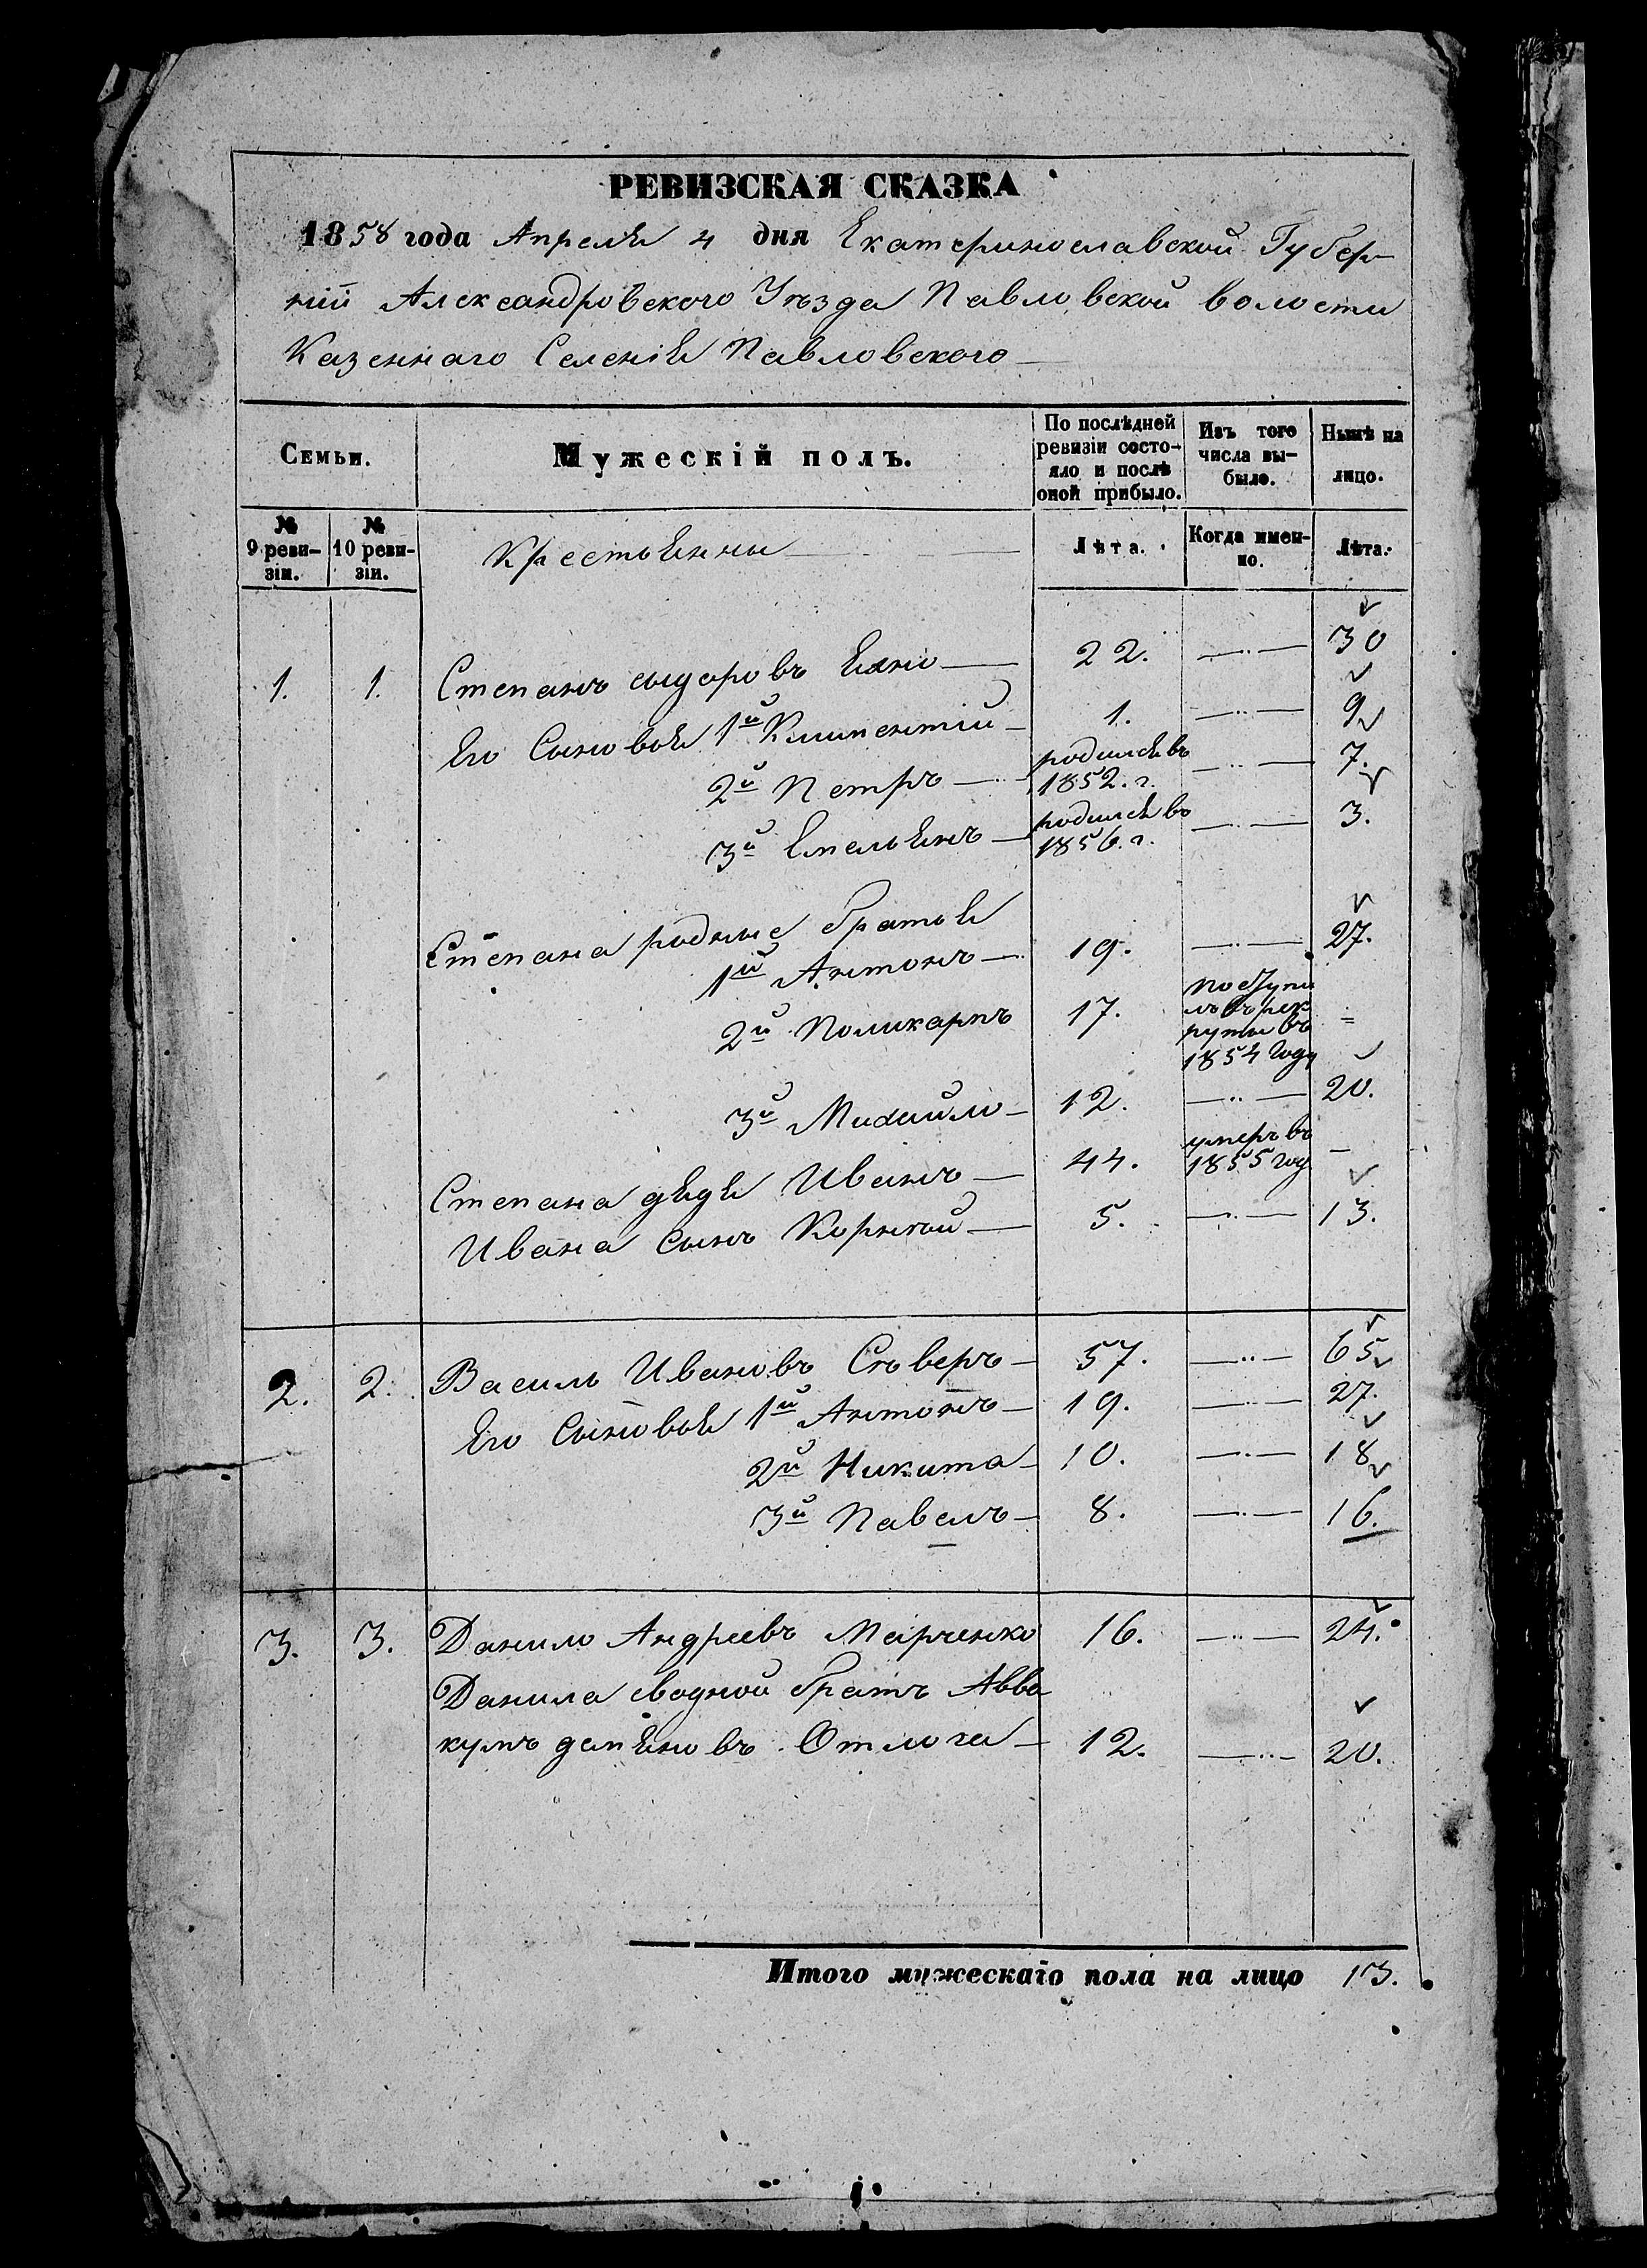 РЕВИЗСКАЯ СКАЗКА
1858 года Апреля 4 дня Екатеринославской Губер-
ніи Александровского Уѣзда Павловской волости
Казеннаго Селенія Павловского
Семьи.
Мужескій полъ.
По послѣдней ревизіи состо-яло и послѣ оной прибыло.
Изъ того числа вы-было.
Нынѣ на лицо.
№ 9 реви-зіи.
№ 10 реви-зіи.
Крестьянны
Лѣта.
Когда имен-но.
Лѣта.
1. 1. Степанъ сыдоровъ 22. 30
Его Сыновья 1й Климентій 1. 9
2й Петръ родился въ 1852. г. 7.
3й Емельянъ родился въ 1856. г. 3.
Степана родные братья
1й Антонъ 19. 27.
2й Поликарпъ 17. поступилъ въ рекруты въ 1854 году =
3й Михайло 12. 20.
Степана дядя Иванъ 44. умеръ въ 1855 год —
Ивана сынъ Корнѣй 5. 13.
2. 2. Василь Ивановъ Сѣверъ 57. 65
Его Сыновья 1й Антонъ 19. 27.
2й Никита 10. 18
3й Павелъ 8. 16.
3. 3. Данило Андреевъ Марченко 16. 24.
Данила сводной братъ Авва
кумъ демяновъ 12. 20.
Итого мужескаго пола на лицо 13.